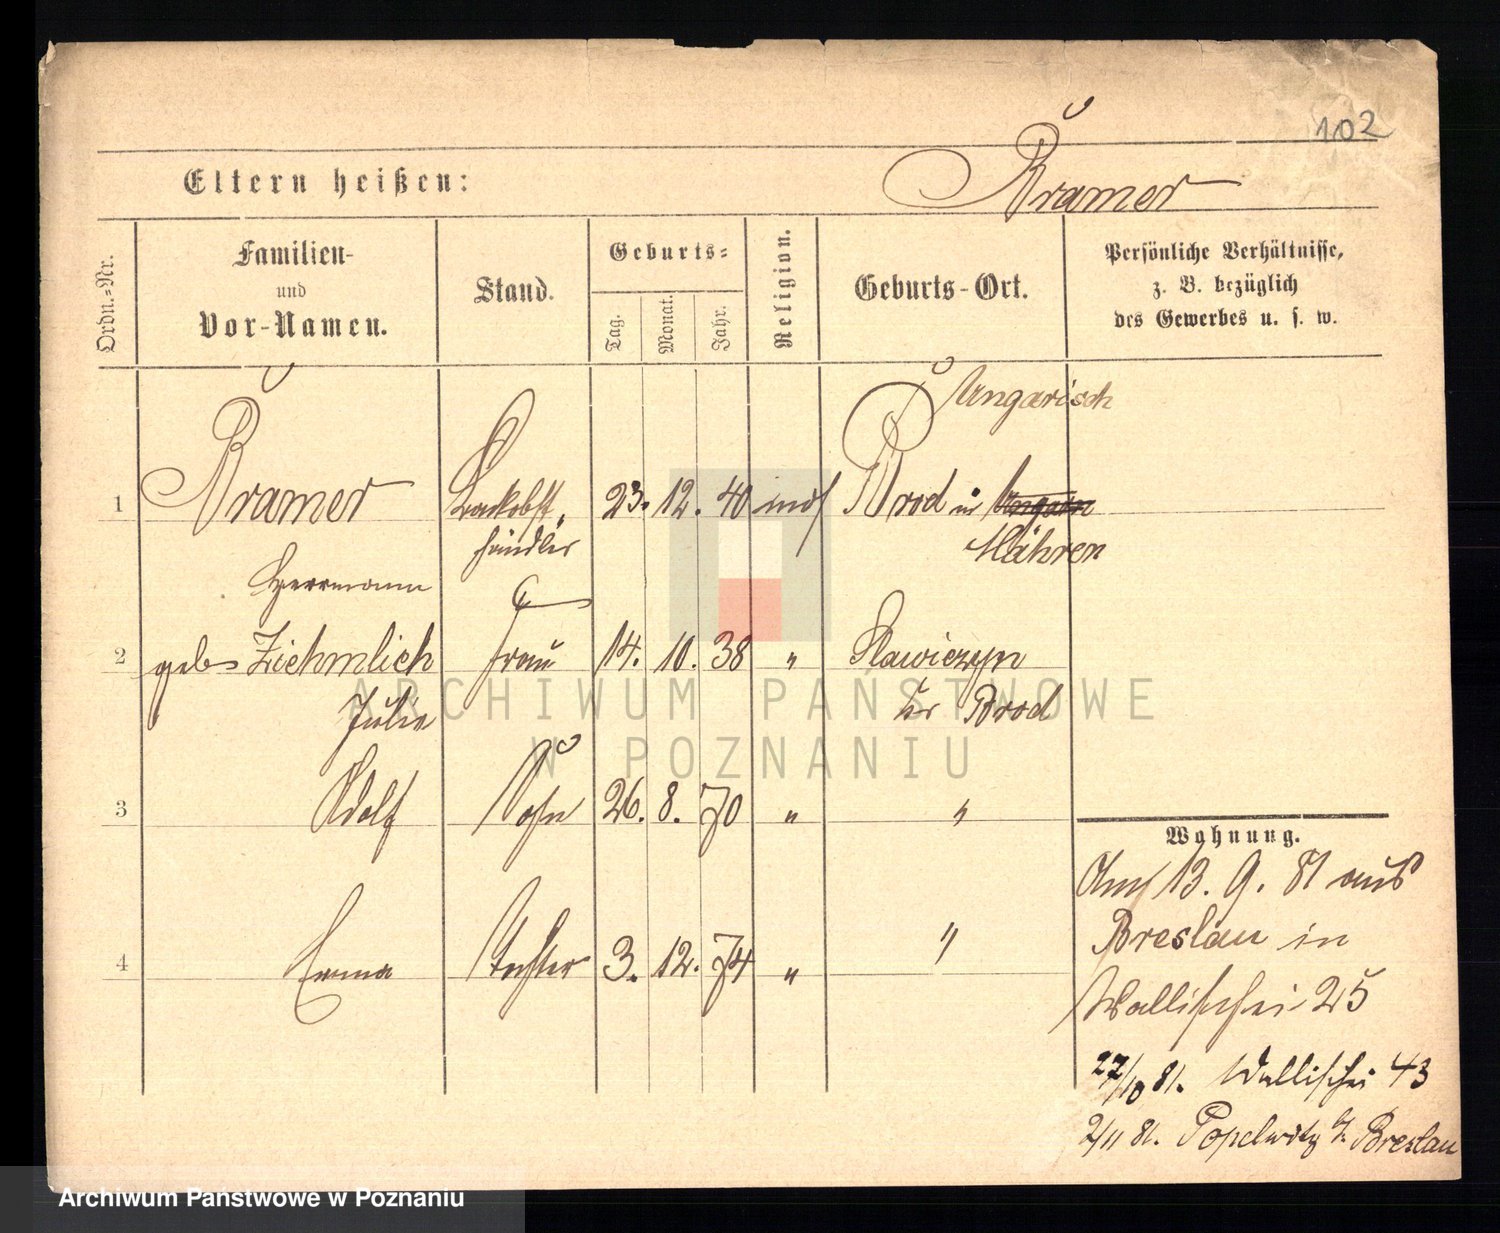 102
Eltern heißen:
Kramer
Ordn.-Nr.
Familien-
und
Vor-Namen.
Stand.
Geburts-
Tag.
Monat.
Jahr.
Religion.
Geburts-Ort.
Persönliche Verhältnisse,
z. B. bezüglich
des Gewerbes u. s. w.
Ungarisch
1 Kramer 23. 12. 40 mos Brod in Ungarn
händler Mähren
Herrmann
2 geb Ziehmlich Frau 14. 10. 38 " Slawiczyn
Julie Brod
3 Adolf Sohn 26. 8. 70 " "
4 Emma Tochter 3. 12. 74 " "
Wohnung.
Am 13. 9. 81 aus
Breslau in
Wallischei 25
27/10 81. Wallischei 43
2/11 81. Popelwitz b/ Breslau
ARCHIWUM PAŃSTWOWE
W POZNANIU
Archiwum Państwowe w Poznaniu